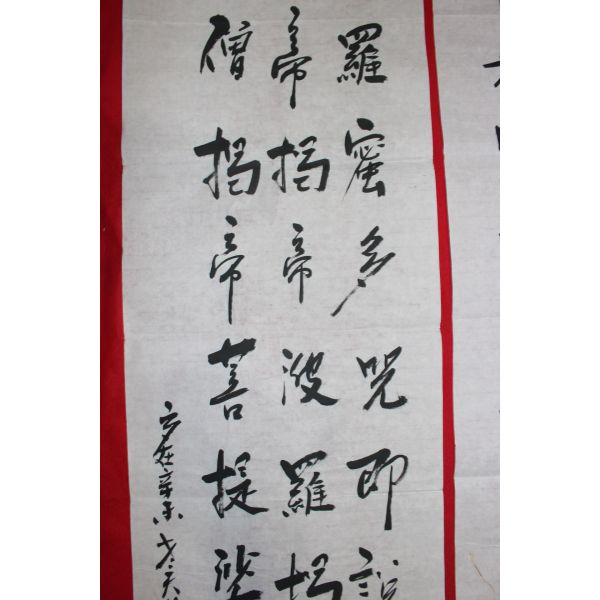 羅蜜多咒即說
帝揭帝波羅揭
僧揭帝菩提娑
歲在辛未